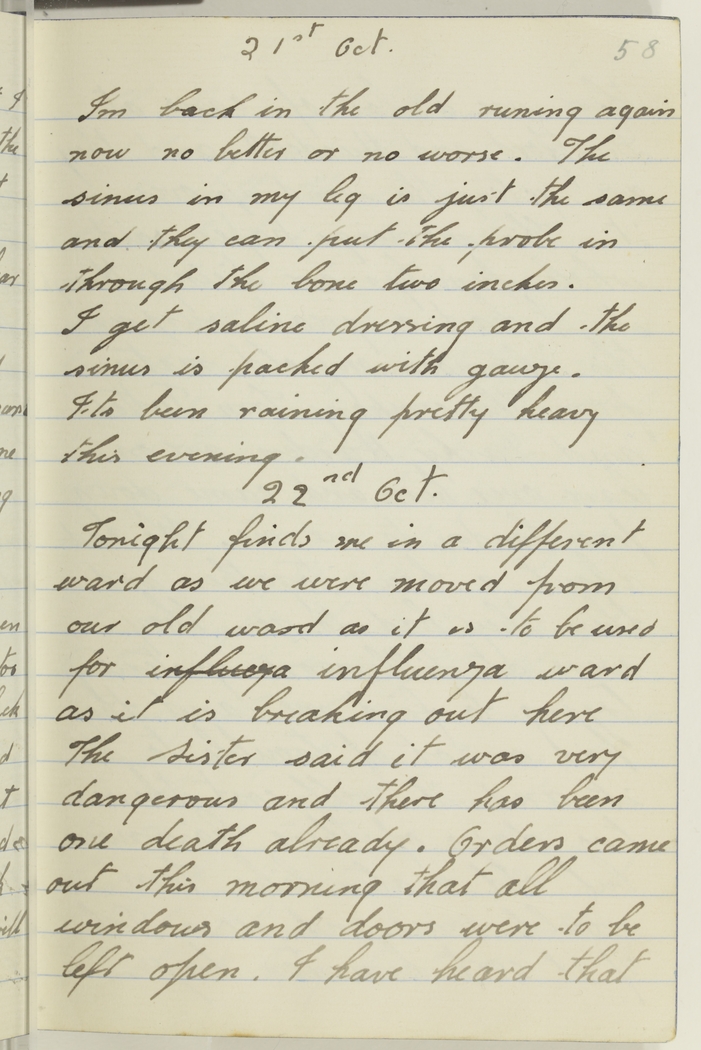 21st Oct.
58
Im back in the old runing again
now no better or no worse. The
sinus in my leg is just the same
and they can put the probe in
through the bone two inches.
I get saline dressing and the
sinus is packed with gauze.
Its been raining pretty heavy
this evening.
22nd Oct.
Tonight finds me in a different
ward as we were moved from
our old ward as it is to be used
for influeza influenza ward
as it is breaking out here
The Sister said it was very
dangerous and there has been
one death already. Orders came
out this morning that all
windows and doors were to be
left open. I have heard that